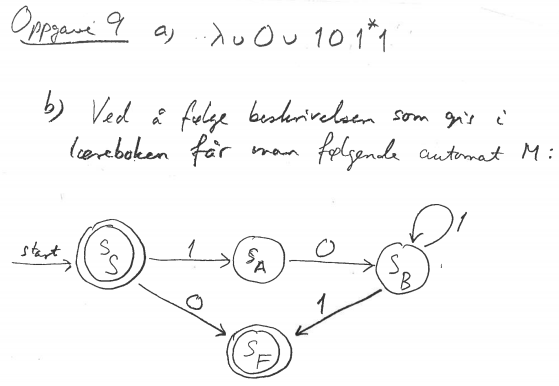 Oppgave 9 a) λ∪0∪101*1
b) Ved å følge beskrivelsen som gis i
læreboken får man følgende automat M:
1
start S_S 1 S_A 0 S_B
0 1
S_F